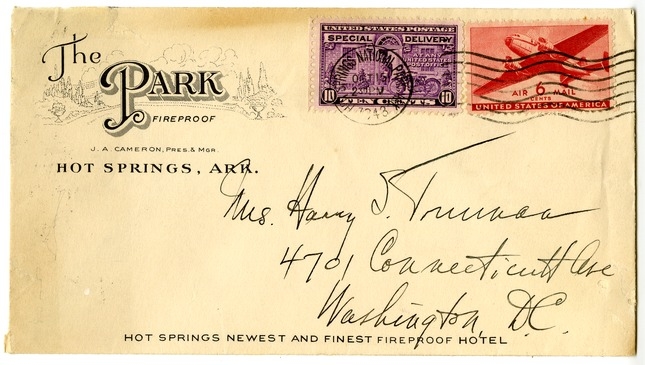 The
PARK
FIREPROOF
J. A. CAMERON, PRES. & MGR.
HOT SPRINGS, ARK.
UNITED STATES POSTAGE
SPECIAL DELIVERY
10 TEN CENTS 10
SPRINGS NATIONAL PARK
AIR 6 MAIL
CENTS
UNITED STATES OF AMERICA
Mrs. Harry S. Truman
4701 Connecticutt Ave
Washington, D.C.
HOT SPRINGS NEWEST AND FINEST FIREPROOF HOTEL